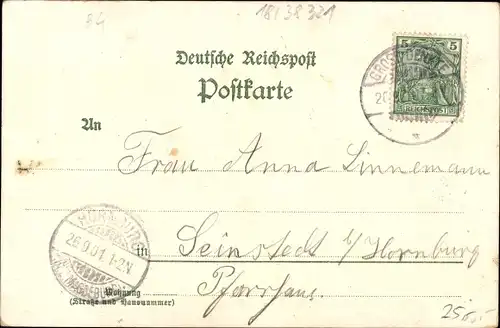 84
18/38321
Deutsche Reichspost
Postkarte
5 5
REICHSPOST
An
Frau Anna Linnemann
in
Seinstedt b/Hornburg
Pfarrhaus.
26.9.01. 1-2N
Wohnung
(Straße und Hausnummer)
25.-